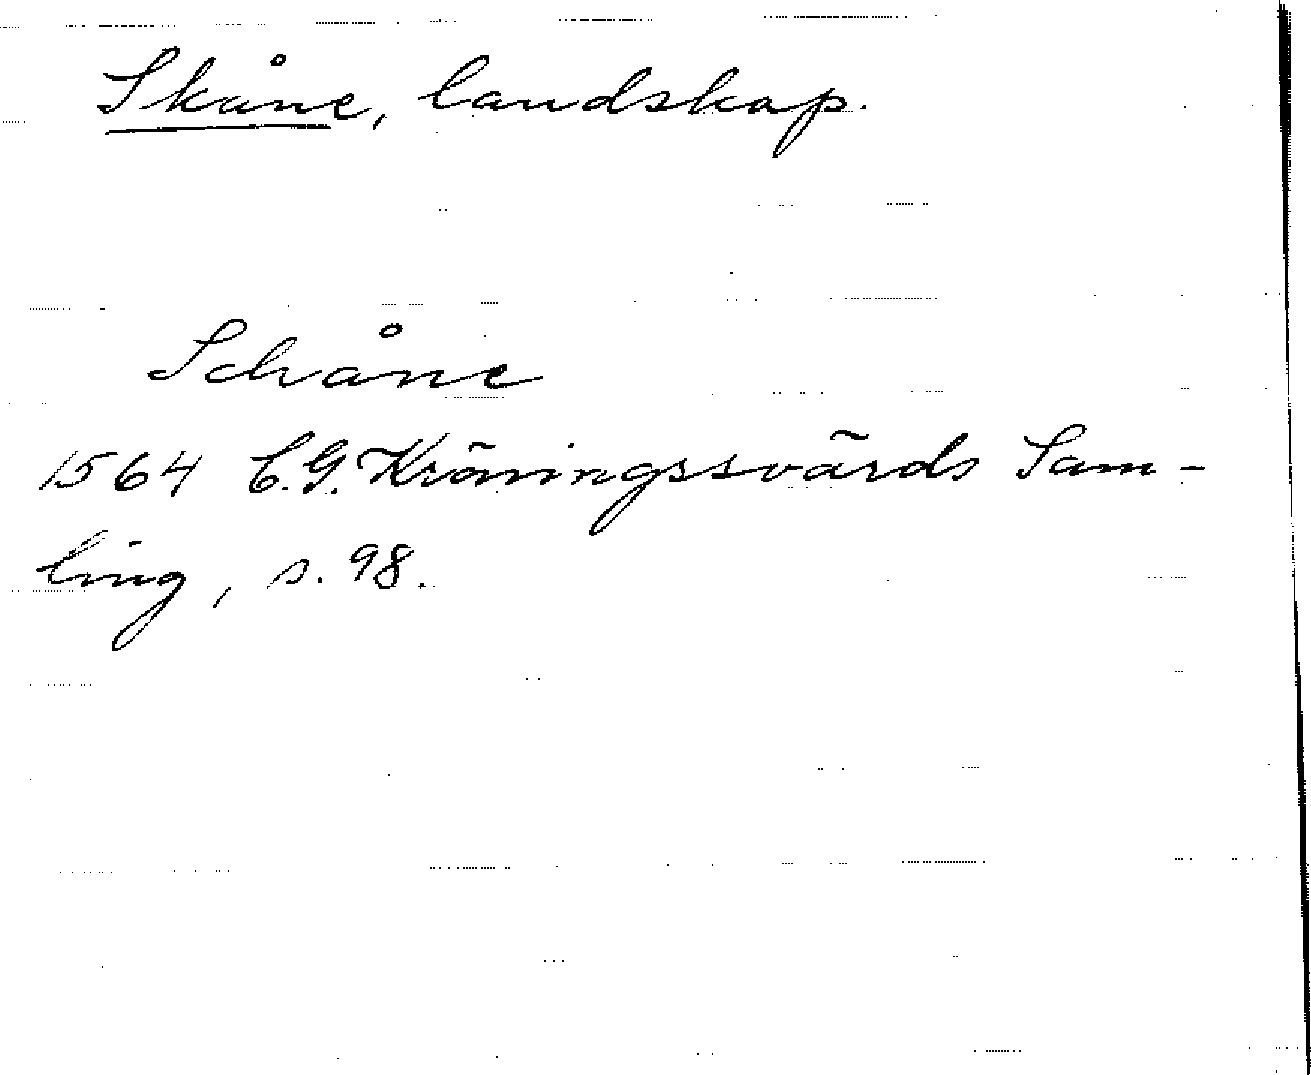 Skåne, landskap.
Schåne
1564 C.G. Kröningssvärds Sam-
ling, s. 98.